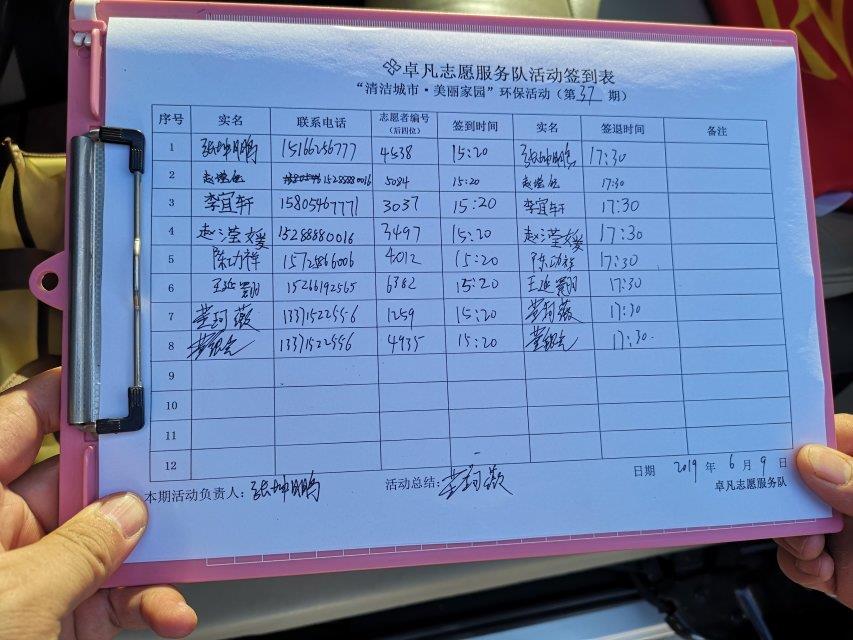 卓凡志愿服务队活动签到表
“清洁城市·美丽家园”环保活动（第37期）
序号 实名 联系电话 志愿者编号（后四位） 签到时间 实名 签退时间 备注
1 张坤鹏 15166256777 4538 15:20 张坤鹏 17:30
2 15288880016 5084 15:20 17:30
3 李宜轩 15805467771 3037 15:20 李宜轩 17:30
4 赵滢媛 15288880016 3497 15:20 赵滢媛 17:30
5 陈功祥 15725866006 4012 15:20 陈功祥 17:30
6 王延翾 15266192565 6382 15:20 王延翾 17:30
7 董珂薇 13371522556 1259 15:20 董珂薇 17:30
8 13371522556 4935 15:20 17:30
9
10
11
12
本期活动负责人：张坤鹏 活动总结：董珂薇 日期 2019年6月9日
卓凡志愿服务队